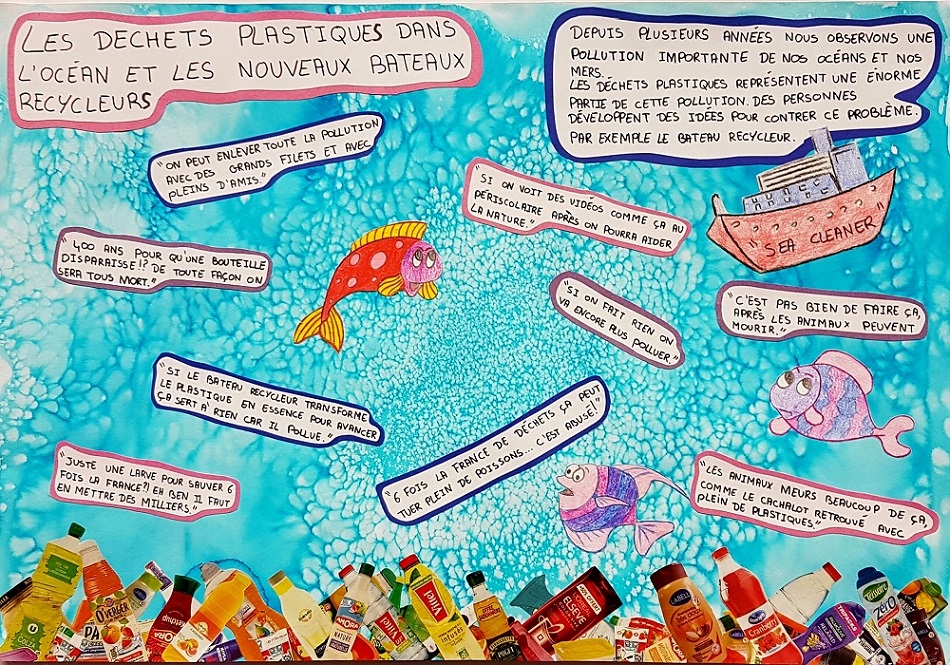 LES DECHETS PLASTIQUES DANS
L'OCÉAN ET LES NOUVEAUX BATEAUX
RECYCLEURS
DEPUIS PLUSIEURS ANNÉES NOUS OBSERVONS UNE
POLLUTION IMPORTANTE DE NOS OCÉANS ET NOS
MERS.
LES DÉCHETS PLASTIQUES REPRÉSENTENT UNE ÉNORME
PARTIE DE CETTE POLLUTION. DES PERSONNES
DÉVELOPPENT DES IDÉES POUR CONTRER CE PROBLÈME.
PAR EXEMPLE LE BATEAU RECYCLEUR.
"ON PEUT ENLEVER TOUTE LA POLLUTION
AVEC DES GRANDS FILETS ET AVEC
PLEINS D'AMIS."
"SI ON VOIT DES VIDÉOS COMME ÇA AU
PÉRISCOLAIRE APRÈS ON POURRA AIDER
LA NATURE."
"SEA CLEANER"
"400 ANS POUR QU'UNE BOUTEILLE
DISPARAISSE!? DE TOUTE FAÇON ON
SERA TOUS MORT."
"SI ON FAIT RIEN ON
VA ENCORE PLUS POLLUER."
"C'EST PAS BIEN DE FAIRE ÇA,
APRÈS LES ANIMAUX PEUVENT
MOURIR."
"SI LE BATEAU RECYCLEUR TRANSFORME
LE PLASTIQUE EN ESSENCE POUR AVANCER
ÇA SERT À RIEN CAR IL POLLUE."
"6 FOIS LA FRANCE DE DÉCHETS ÇA PEUT
TUER PLEIN DE POISSONS... C'EST ABUSÉ!"
"JUSTE UNE LARVE POUR SAUVER 6
FOIS LA FRANCE?! EH BEN IL FAUT
EN METTRE DES MILLIERS."
"LES ANIMAUX MEURS BEAUCOUP DE ÇA,
COMME LE CACHALOT RETROUVÉ AVEC
PLEIN DE PLASTIQUES."
VERGER
Vittel
Vittel
ELSEVE
LABELL
Cranberry
zero